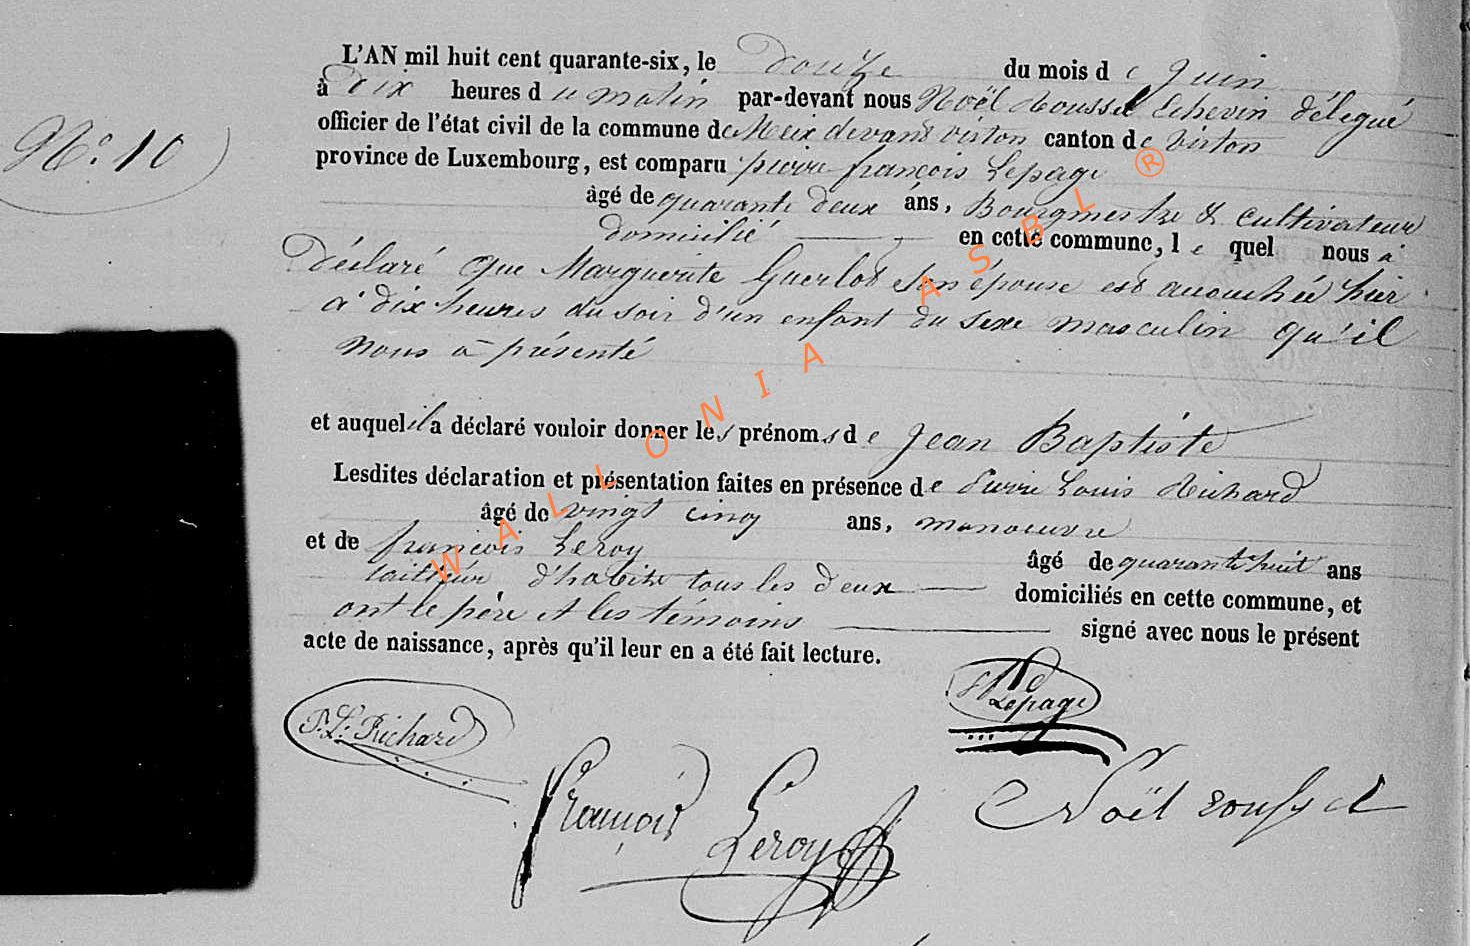 N.° 10
L'AN mil huit cent quarante-six, le douze du mois de juin
à dix heures du matin par-devant nous Noël Roussel Echevin délegué
officier de l'état civil de la commune de Meix devant virton canton de virton
province de Luxembourg, est comparu pierre françois Lepage
âgé de quarante deux ans, Bourgmestre & cultivateur
domicilié en cette commune, le quel nous à
déclaré que Marguerite Guerlot son épouse est accouchée hier
à dix heures du soir d'un enfant du sexe masculin qu'il
nous a présenté
et auquel il a déclaré vouloir donner les prénoms de jean Baptiste
Lesdites déclaration et présentation faites en présence de Pierre Louis Richard
âgé de vingt cinq ans, manoeuvre
et de françois Leroy âgé de quarante huit ans
tailleur d'habits tous les deux domiciliés en cette commune, et
ont le père et les témoins signé avec nous le présent
acte de naissance, après qu'il leur en a été fait lecture.
P. L. Richard
Lepage
François Leroy
Noël roussel
WALLONIA ASBL ®